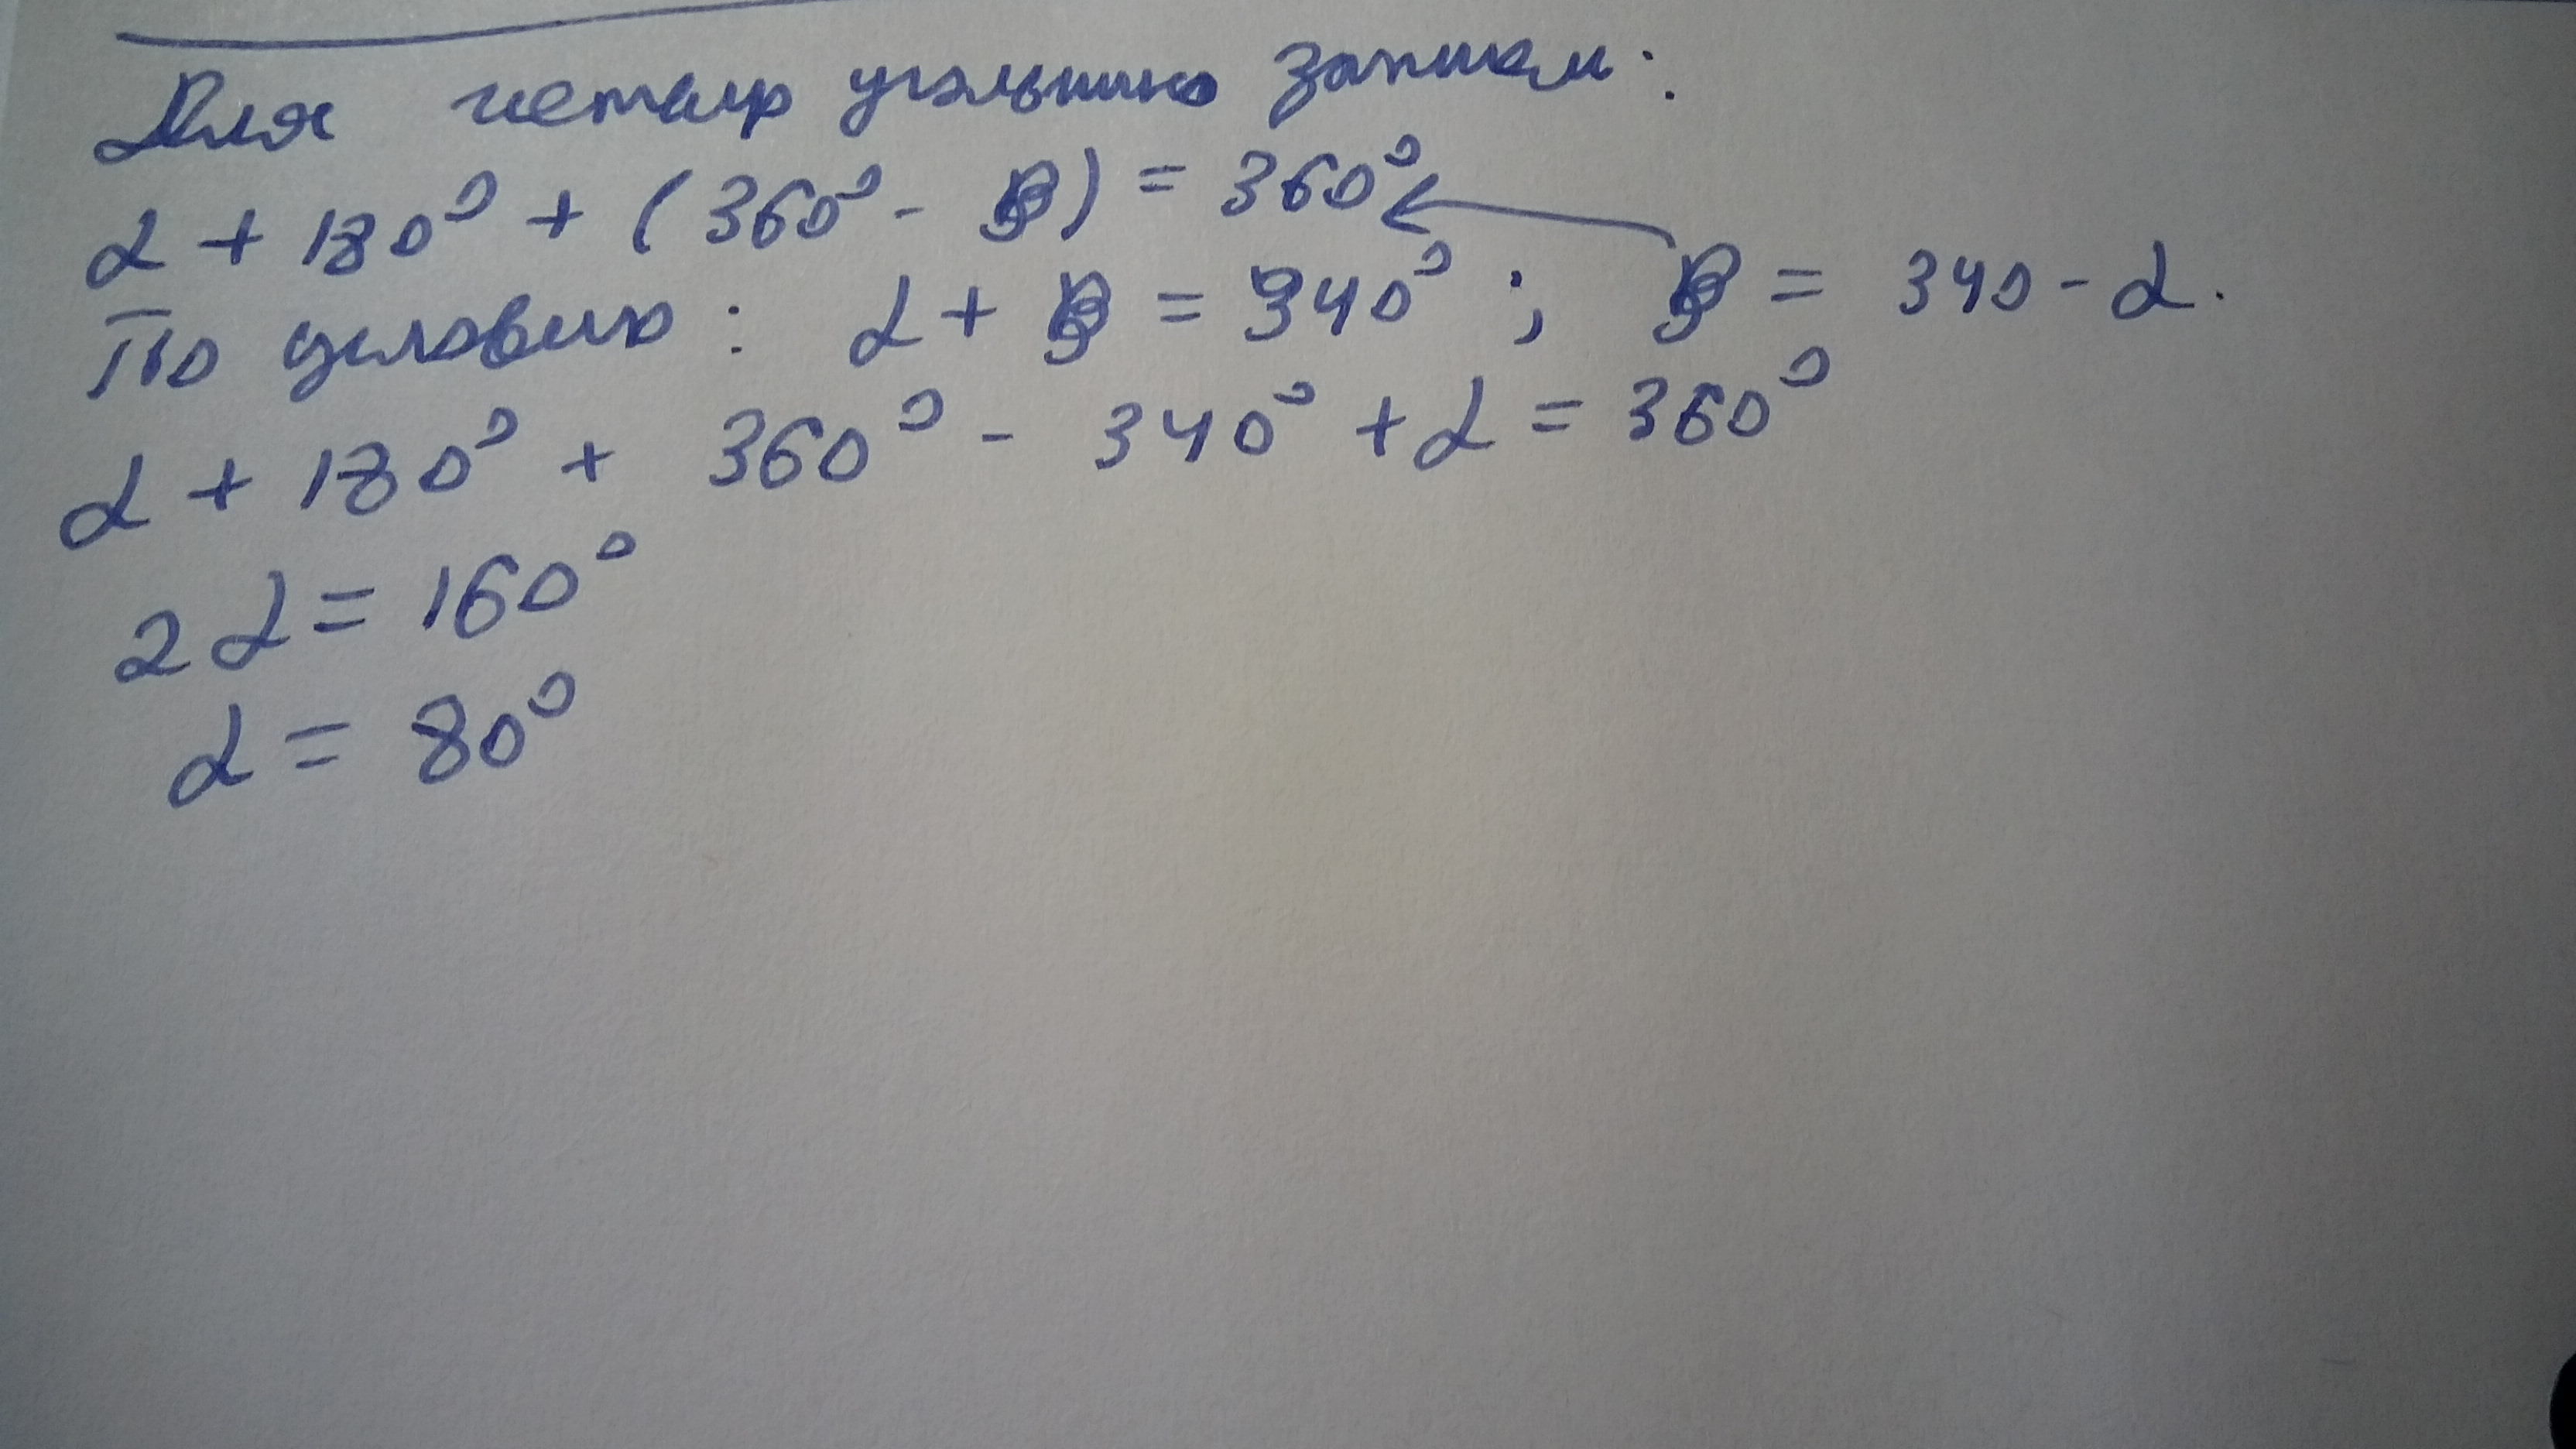 Для четыр угольника запишем:
α + 180° + (360° - β) = 360°
По условию: α + β = 340° ; β = 340 - α.
α + 180° + 360° - 340° + α = 360°
2α = 160°
α = 80°